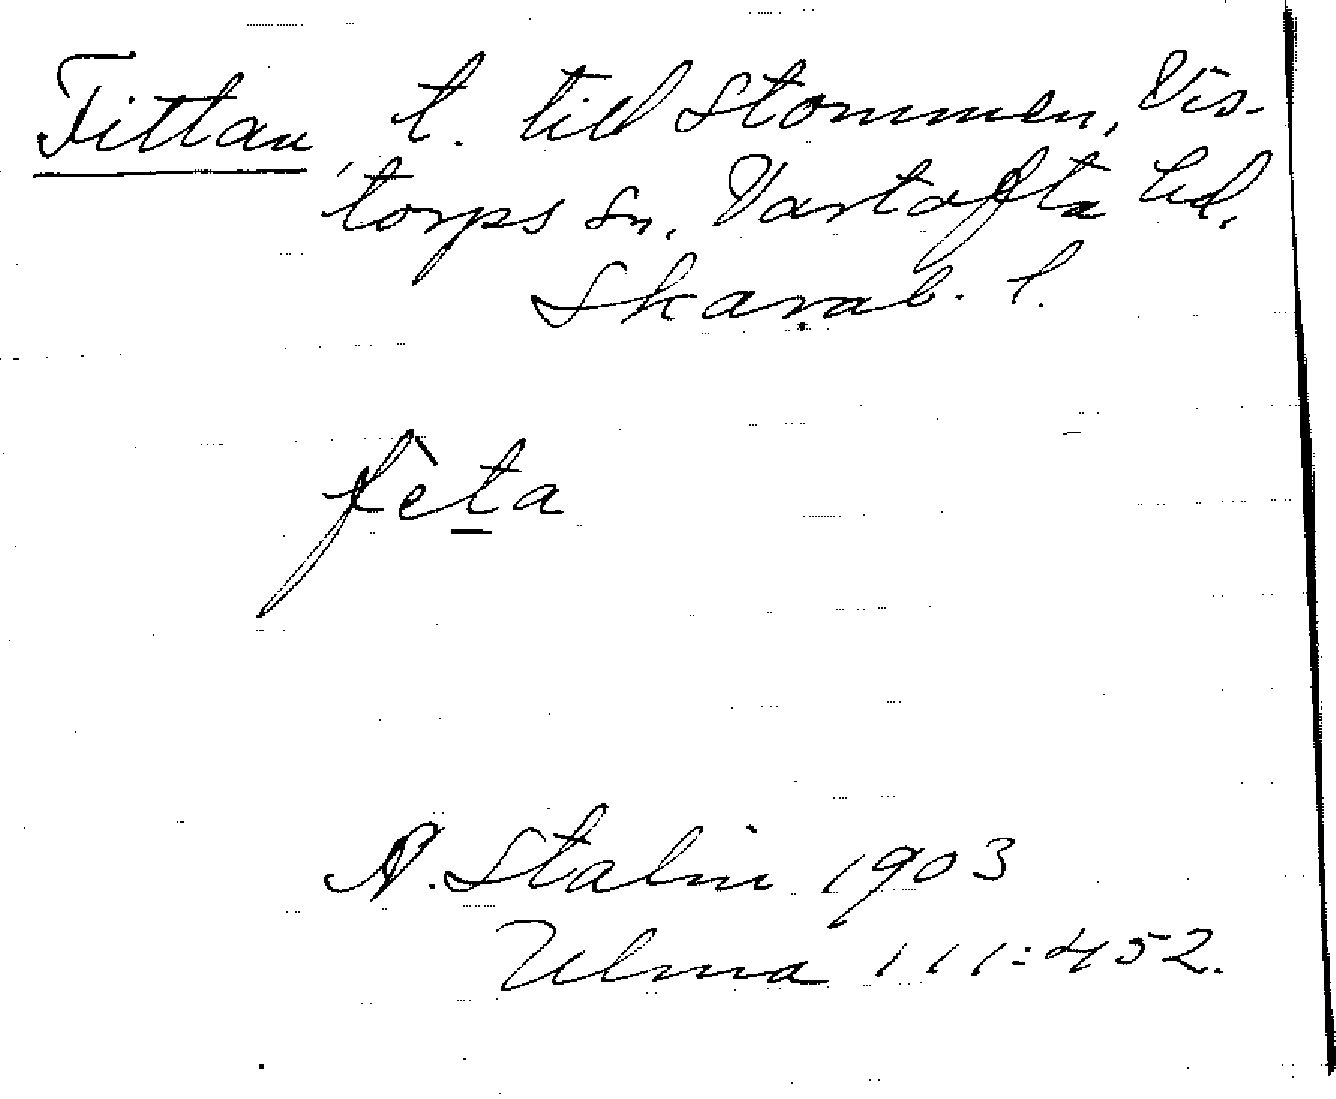 Fittan, t. till Stommen, Vis-
torps sn, Vartofta hd,
Skarab. l.
fèta
A. Stalin 1903
Ulma 111:452.